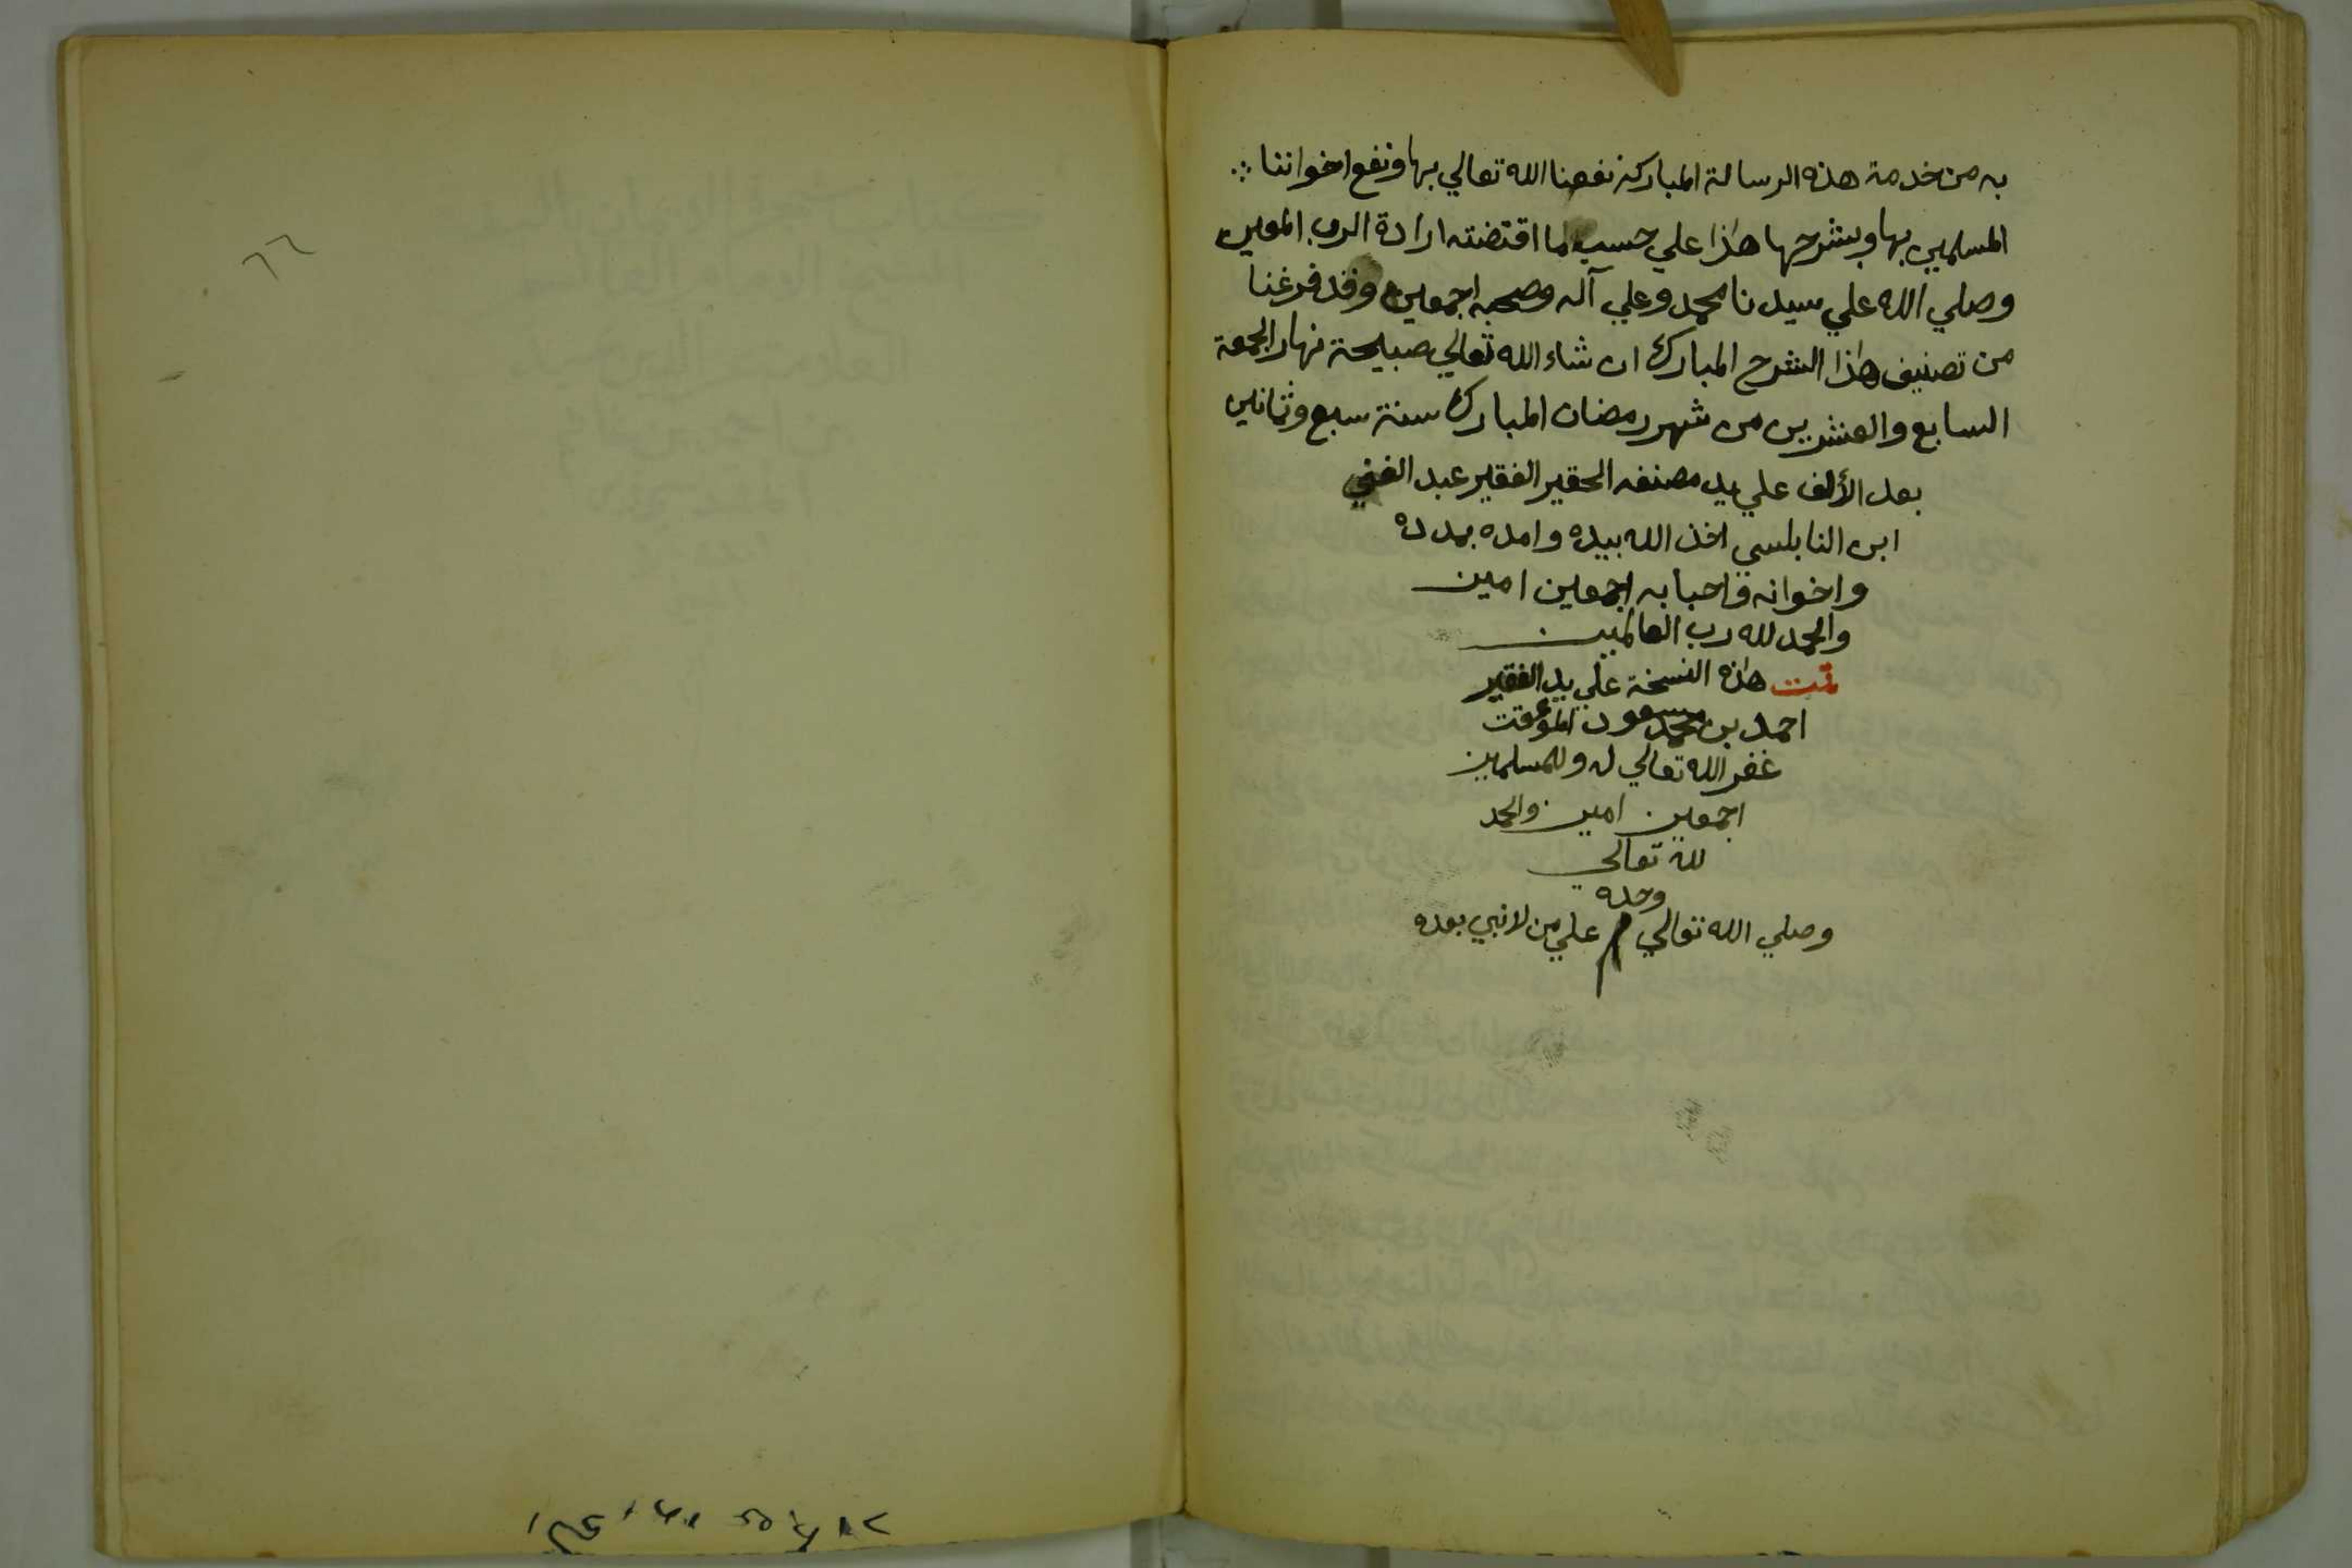 به من خدمة هذه الرسالة المباركة نفعنا الله تعالي بها ونفع اخواننا
المسلمين بها وبشرحها هذا علي حسب ما اقتضته ارادة الرب المعين
وصلي الله علي سيدنا محمد وعلي آله وصحبه اجمعين وقد فرغنا
من تصنيف هذا الشرح المبارك ان شاء الله تعالي صبيحة نهار الجمعة
السابع والعشرين من شهر رمضان المبارك سنة سبع وثمانين
بعد الألف علي يد مصنفه الحقير الفقير عبد الغني
ابن النابلسي اخذ الله بيده وامده بمدده
واخوانه واحبابه اجمعين امين
والحمد لله رب العالمين
تمت هذه النسخة علي يد الفقير
احمد بن محمد مسعود الموقت
غفر الله تعالي له وللمسلمين
اجمعين امين والحمد
لله تعالي
وحده
وصلي الله تعالي م علي من لا نبي بعده
٦٦